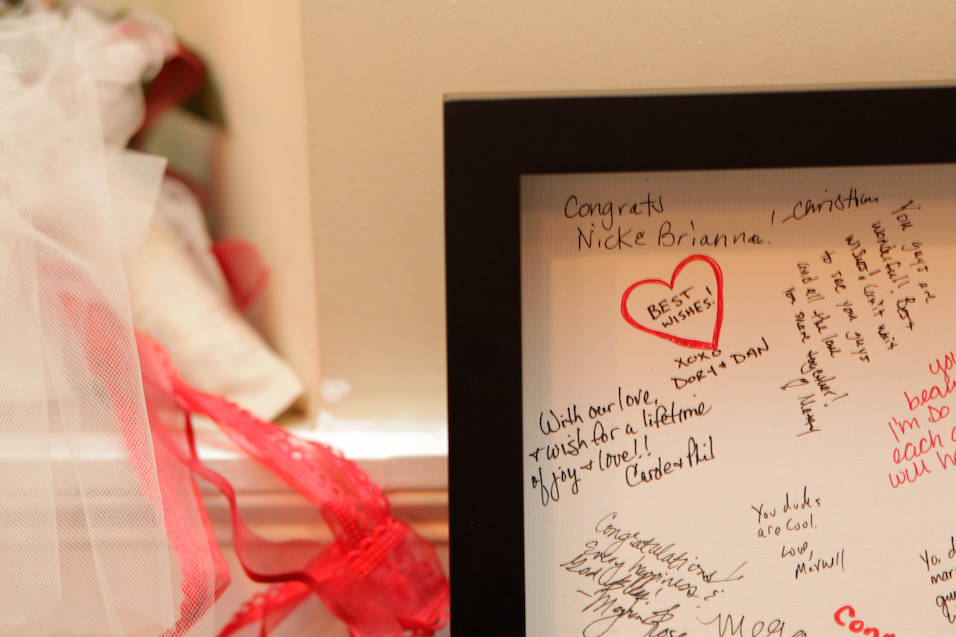 Congrats
Nick & Brianna! - Christian
BEST
WISHES!
XOXO
DORY & DAN
You guys are
wonderful! Best
wishes! Can't wait
to see you guys
and all the love
you share together!
With our love,
& wish for a lifetime
of joy & love!!
Carole & Phil
you
beau
I'm so
each o
will ha
You dudes
are cool.
Love,
Maxwell
Congratulations!
Enjoy happiness &
Good
Rose
Mega
Con
Yo, d
marr
guy